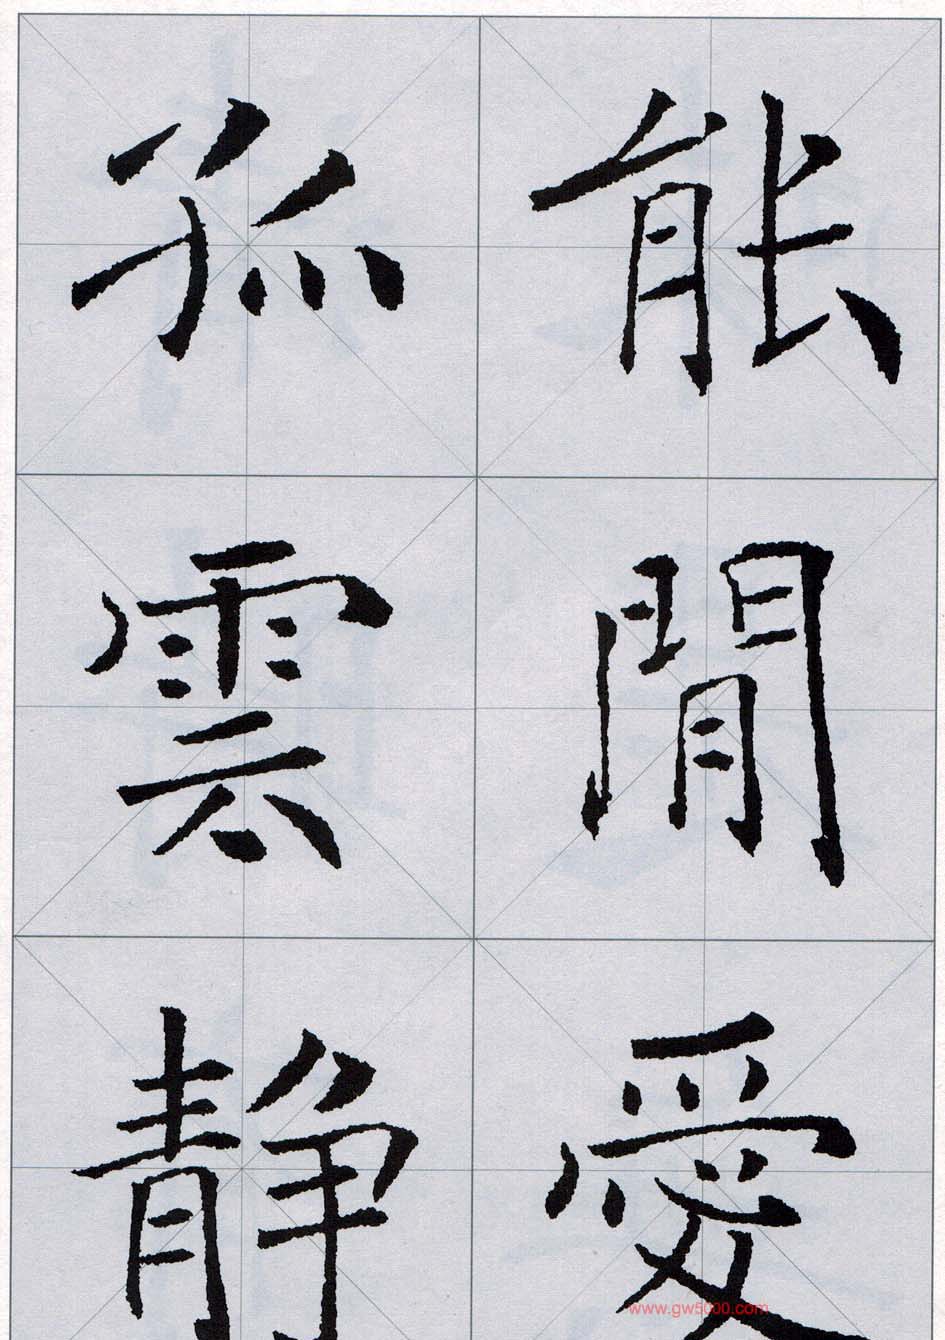 能閒愛
孤雲静
www.gw5000.com